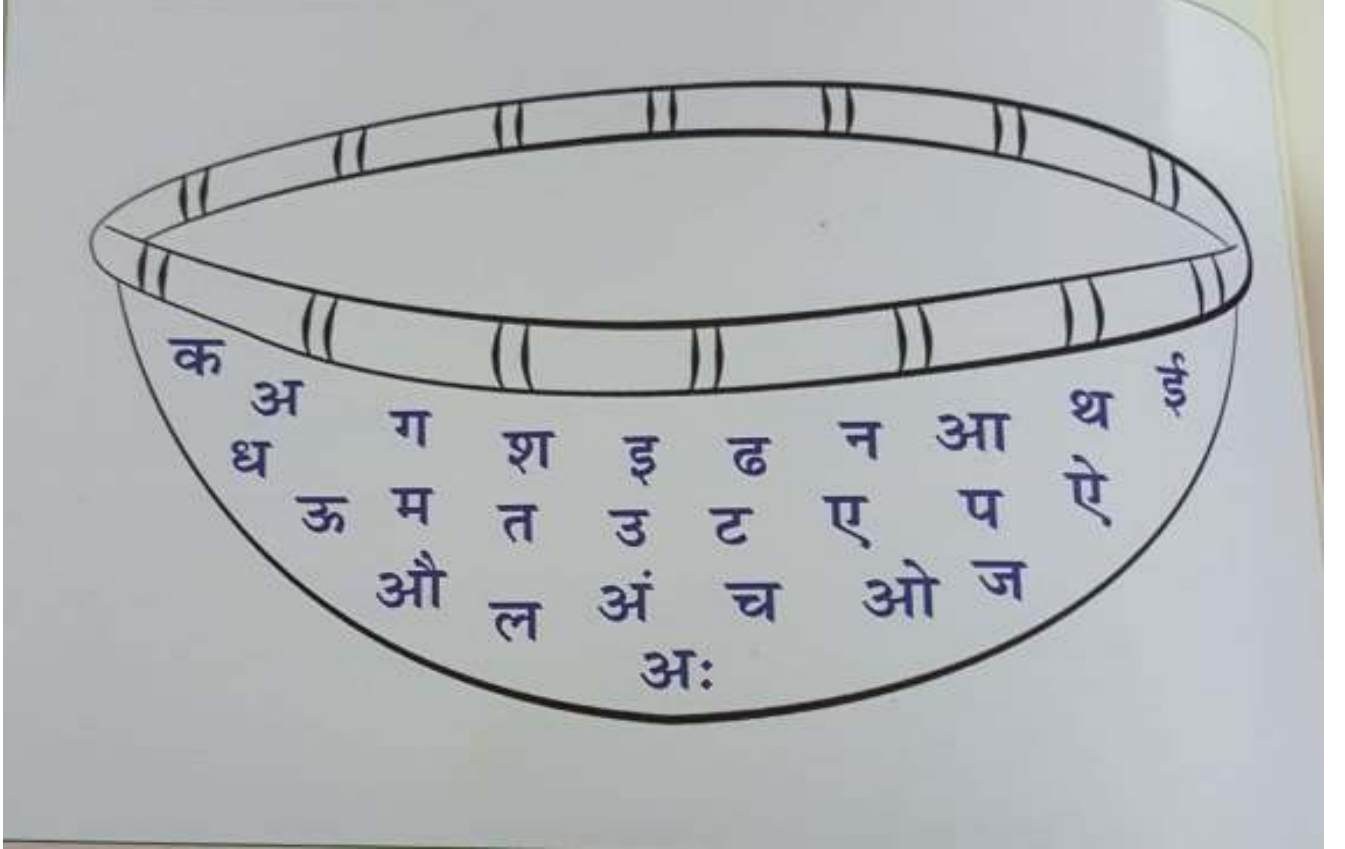 क अ ग श इ ढ न आ थ ई
ध ऊ म त उ ट ए प ऐ
औ ल अं च ओ ज
अः